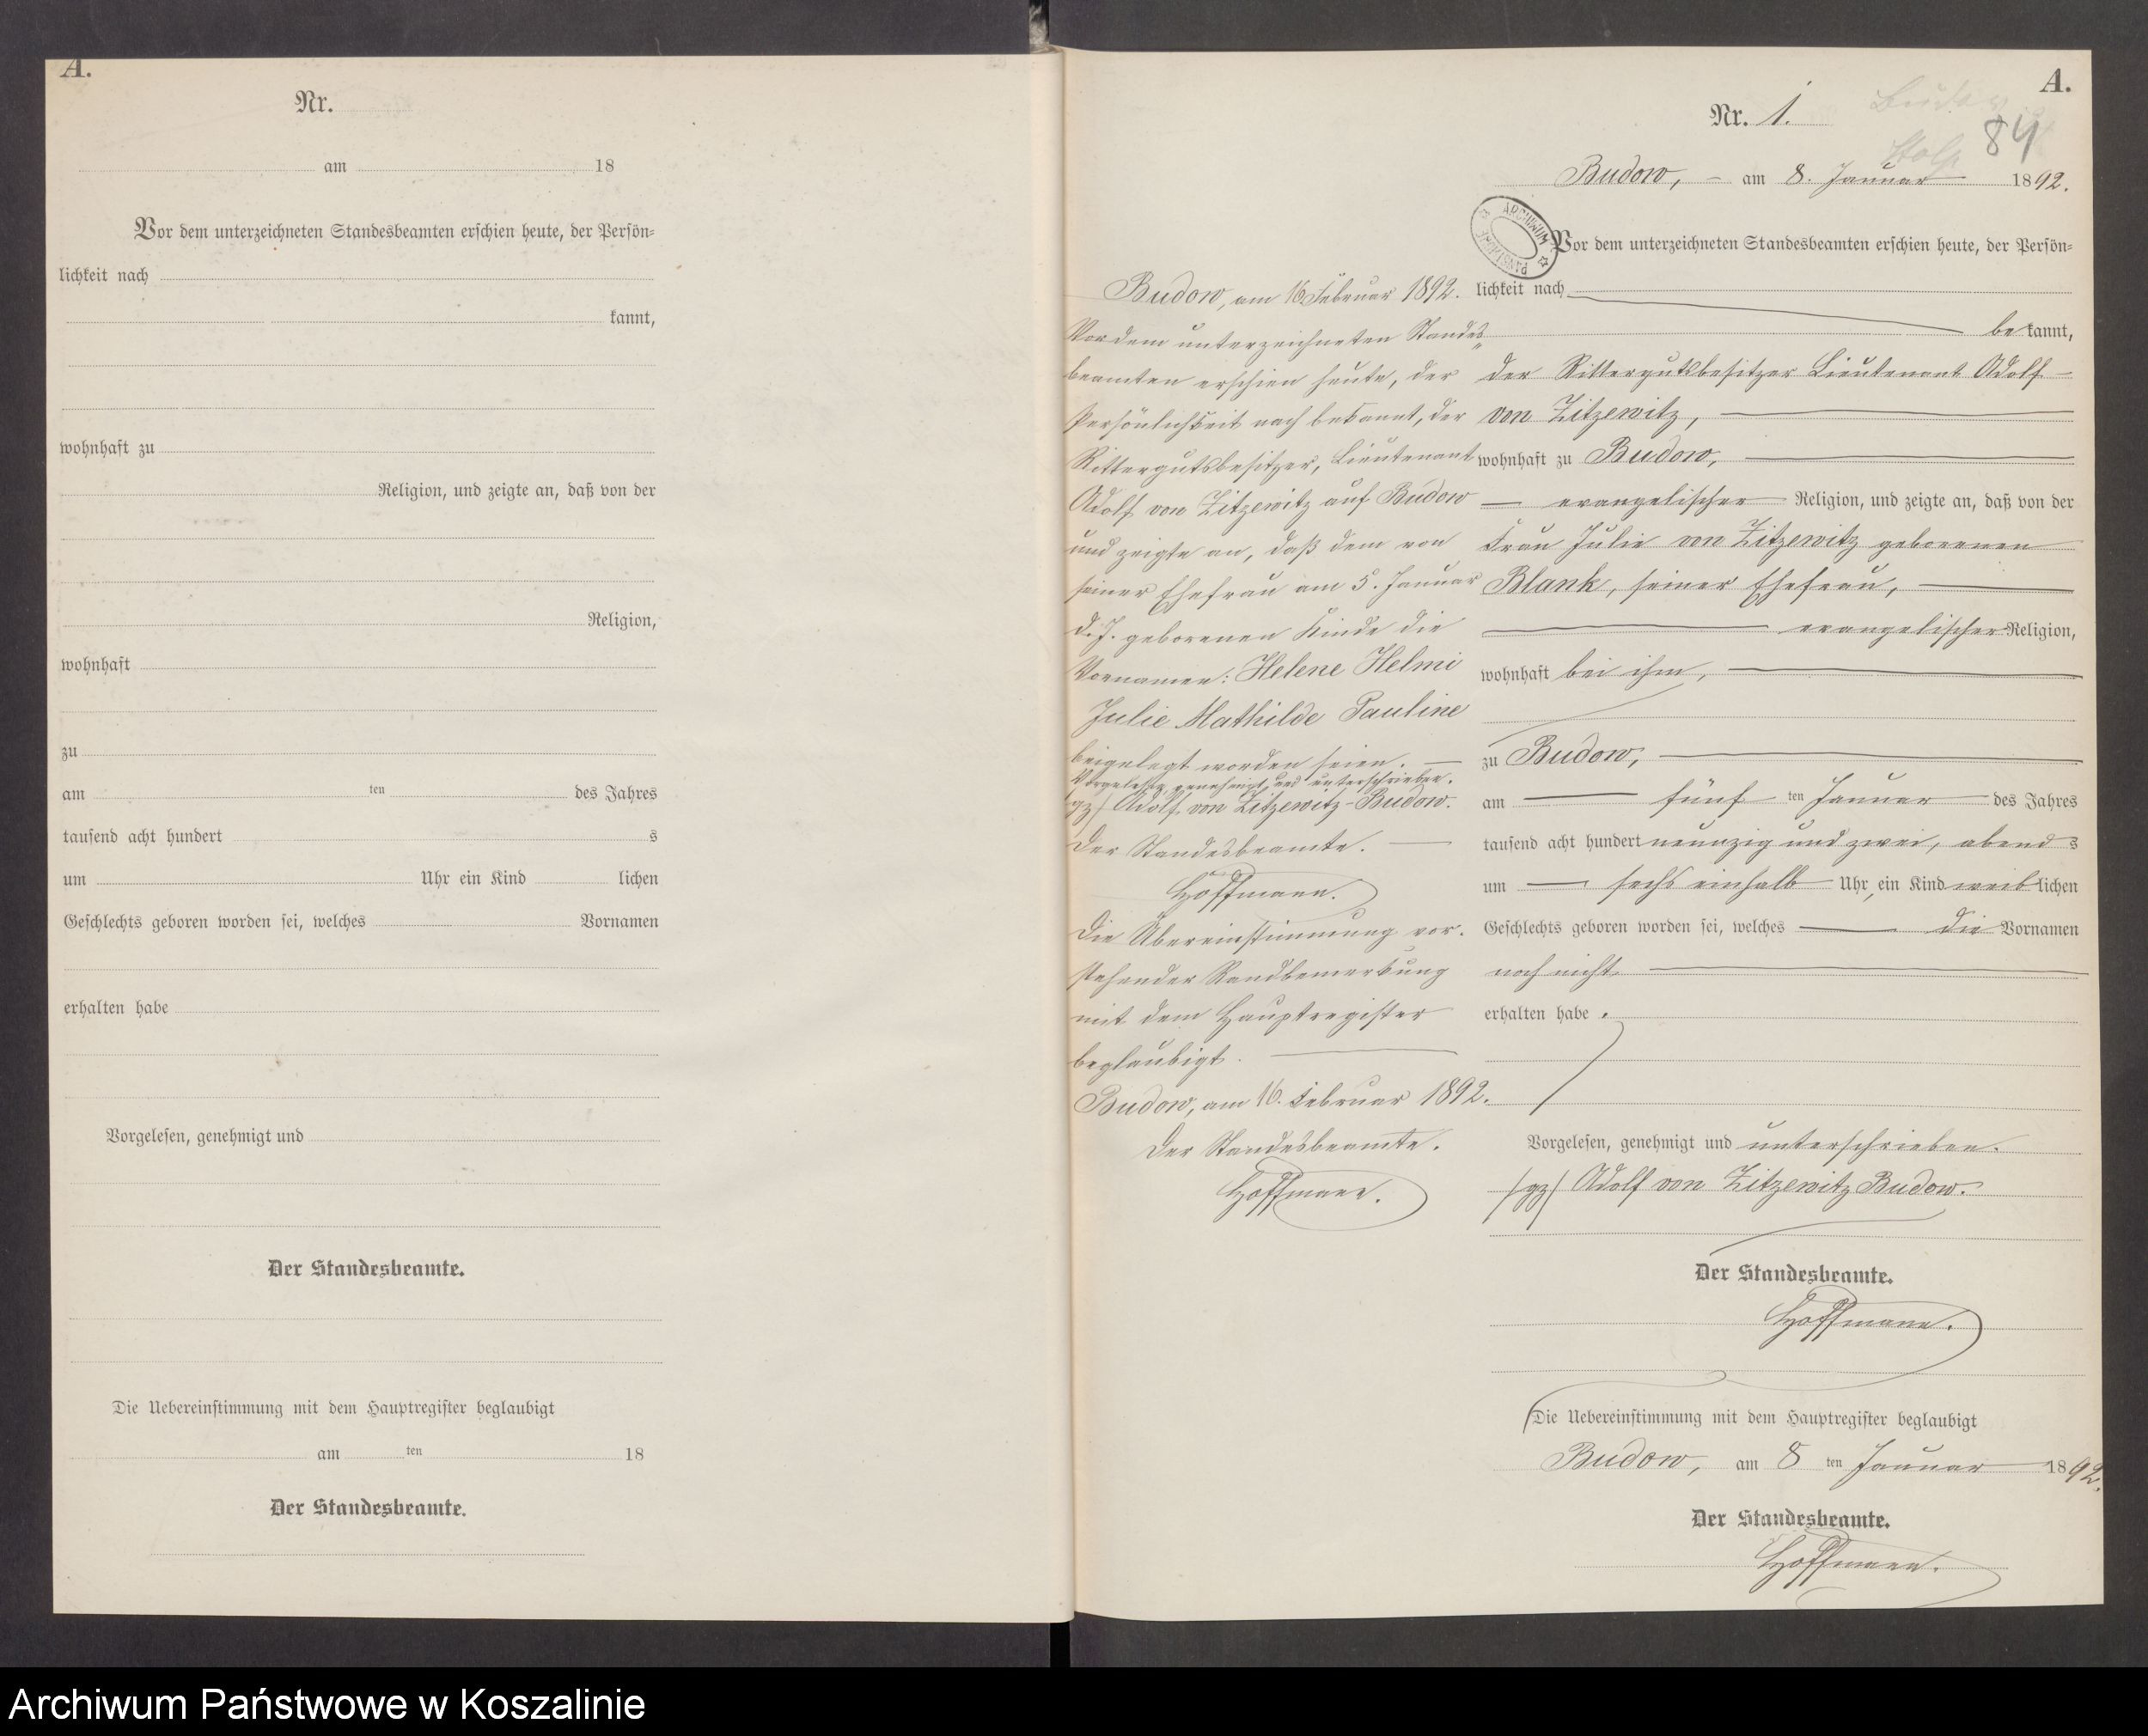 A.
Nr.
am 18
Vor dem unterzeichneten Standesbeamten erschien heute, der Persön-
lichkeit nach
kannt,
wohnhaft zu
Religion, und zeigte an, daß von der
Religion,
wohnhaft
zu
am ten des Jahres
tausend acht hundert s
um Uhr ein Kind lichen
Geschlechts geboren worden sei, welches Vornamen
erhalten habe
Vorgelesen, genehmigt und
Der Standesbeamte.
Die Uebereinstimmung mit dem Hauptregister beglaubigt
am ten 18
Der Standesbeamte.
A.
Nr. 1.
84
Budow, am 8. Januar 1892.
ARCHIWUM
Vor dem unterzeichneten Standesbeamten erschien heute, der Persön-
lichkeit nach
be kannt,
der Rittergutsbesitzer Lieutenant Adolf
von Zitzewitz,
wohnhaft zu Budow,
evangelischer Religion, und zeigte an, daß von der
Frau Julie von Zitzewitz geborenen
Blank, seiner Ehefrau,
evangelischer Religion,
wohnhaft bei ihm,
zu Budow,
am fünf ten Januar des Jahres
tausend acht hundert neunzig und zwei, abend s
um sechs einhalb Uhr, ein Kind weib lichen
Geschlechts geboren worden sei, welches die Vornamen
noch nicht
erhalten habe.
Vorgelesen, genehmigt und unterschrieben.
(gz) Adolf von Zitzewitz Budow.
Der Standesbeamte.
Hoffmann.
Die Uebereinstimmung mit dem Hauptregister beglaubigt
Budow, am 8 ten Januar 1892.
Der Standesbeamte.
Hoffmann.
Budow, am 16. Februar 1892.
Vor dem unterzeichneten Standes
beamten erschien heute, der
Persönlichkeit nach bekannt, der
Rittergutsbesitzer, Lieutenant
Adolf von Zitzewitz auf Budow
und zeigte an, daß dem von
seiner Ehefrau am 5. Januar
d. J. geborenen Kinde die
Vornamen: Helene Helmi
Julie Mathilde Pauline
beigelegt worden seien.
Vorgelesen, genehmigt und unterschrieben.
(gz) Adolf von Zitzewitz-Budow.
Der Standesbeamte.
Hoffmann.
Die Übereinstimmung vor-
stehender Randbemerkung
mit dem Hauptregister
beglaubigt.
Budow, am 16. Februar 1892.
Der Standesbeamte.
Hoffmann.
Archiwum Państwowe w Koszalinie